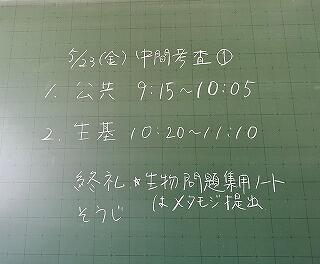 5/23(金) 中間考査①
1. 公共 9:15~10:05
2. 生基 10:20~11:10
終礼 *生物問題集用ノート
はメタモジ提出
そうじ